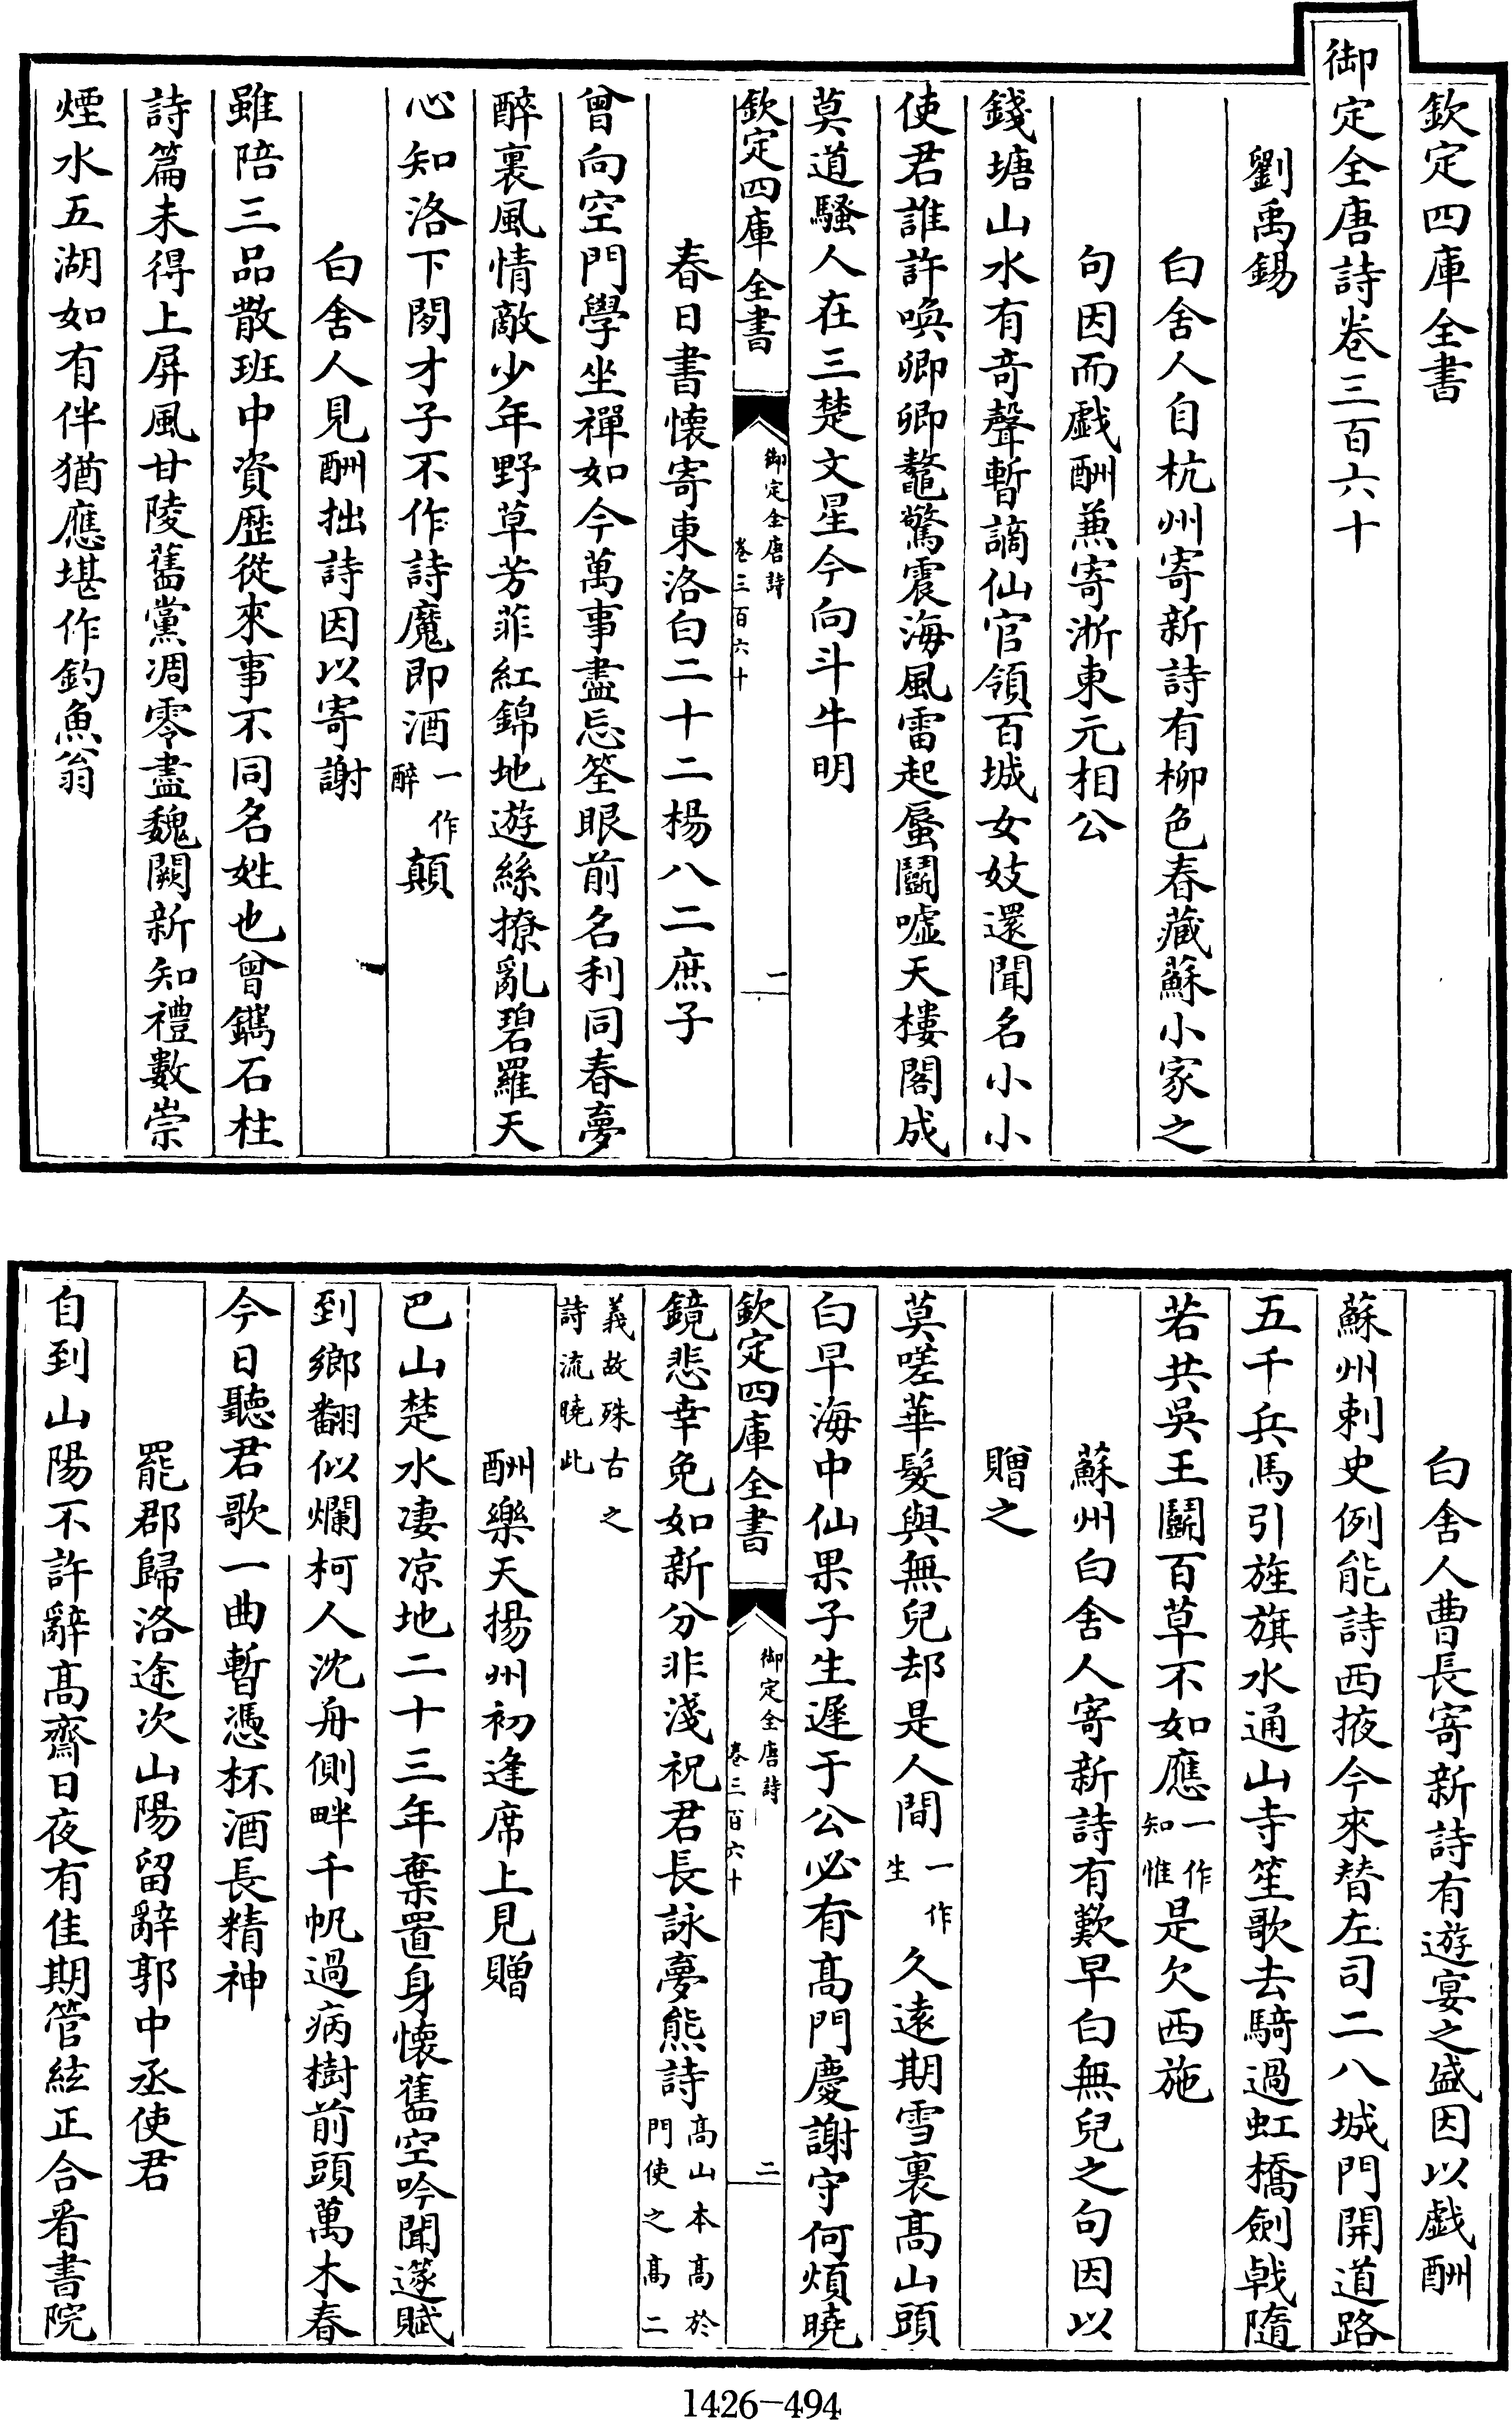 欽定四庫全書
御定全唐詩卷三百六十
劉禹錫
白舍人自杭州寄新詩有柳色春藏蘇小家之
句因而戱酬兼寄浙東元相公
錢塘山水有竒聲暫謫仙官領百城女妓還聞名小小
使君誰許喚卿卿鼇驚震海風雷起蜃鬬噓天樓閣成
莫道騷人在三楚文星今向斗牛明
欽定四庫全書
御定全唐詩
卷三百六十
一
春日書懐寄東洛白二十二楊八二庶子
曾向空門學坐禪如今萬事盡忘筌眼前名利同春夢
醉裏風情敵少年野草芳菲紅錦地遊絲撩亂碧羅天
心知洛下閒才子不作詩魔即酒一作醉顛
白舍人見酬拙詩因以寄謝
雖陪三品散班中資歴從來事不同名姓也曾鐫石柱
詩篇未得上屏風甘陵舊黨凋零盡魏闕新知禮數崇
煙水五湖如有伴猶應堪作釣魚翁
白舍人曹長寄新詩有遊宴之盛因以戯酬
蘇州刺史例能詩西掖今來替左司二八城門開道路
五千兵馬引旌旗水通山寺笙歌去騎過虹橋劍戟隨
若共吳王鬬百草不如應一作知惟是欠西施
蘇州白舍人寄新詩有歎早白無兒之句因以
贈之
莫嗟華髮與無兒却是人間一作生久遠期雪裏髙山頭
白早海中仙果子生遲于公必有髙門慶謝守何煩曉
欽定四庫全書
御定全唐詩
卷三百六十
二
鏡悲幸免如新分非淺祝君長詠夢熊詩髙山本髙於門使之髙二
義故殊古之詩流曉此
酬樂天揚州初逢席上見贈
巴山楚水凄凉地二十三年棄置身懐舊空吟聞邃賦
到鄉翻似爛柯人沈舟側畔千帆過病樹前頭萬木春
今日聽君歌一曲暫憑杯酒長精神
罷郡歸洛途次山陽留辭郭中丞使君
自到山陽不許辭髙齋日夜有佳期管絃正合看書院
1426-494